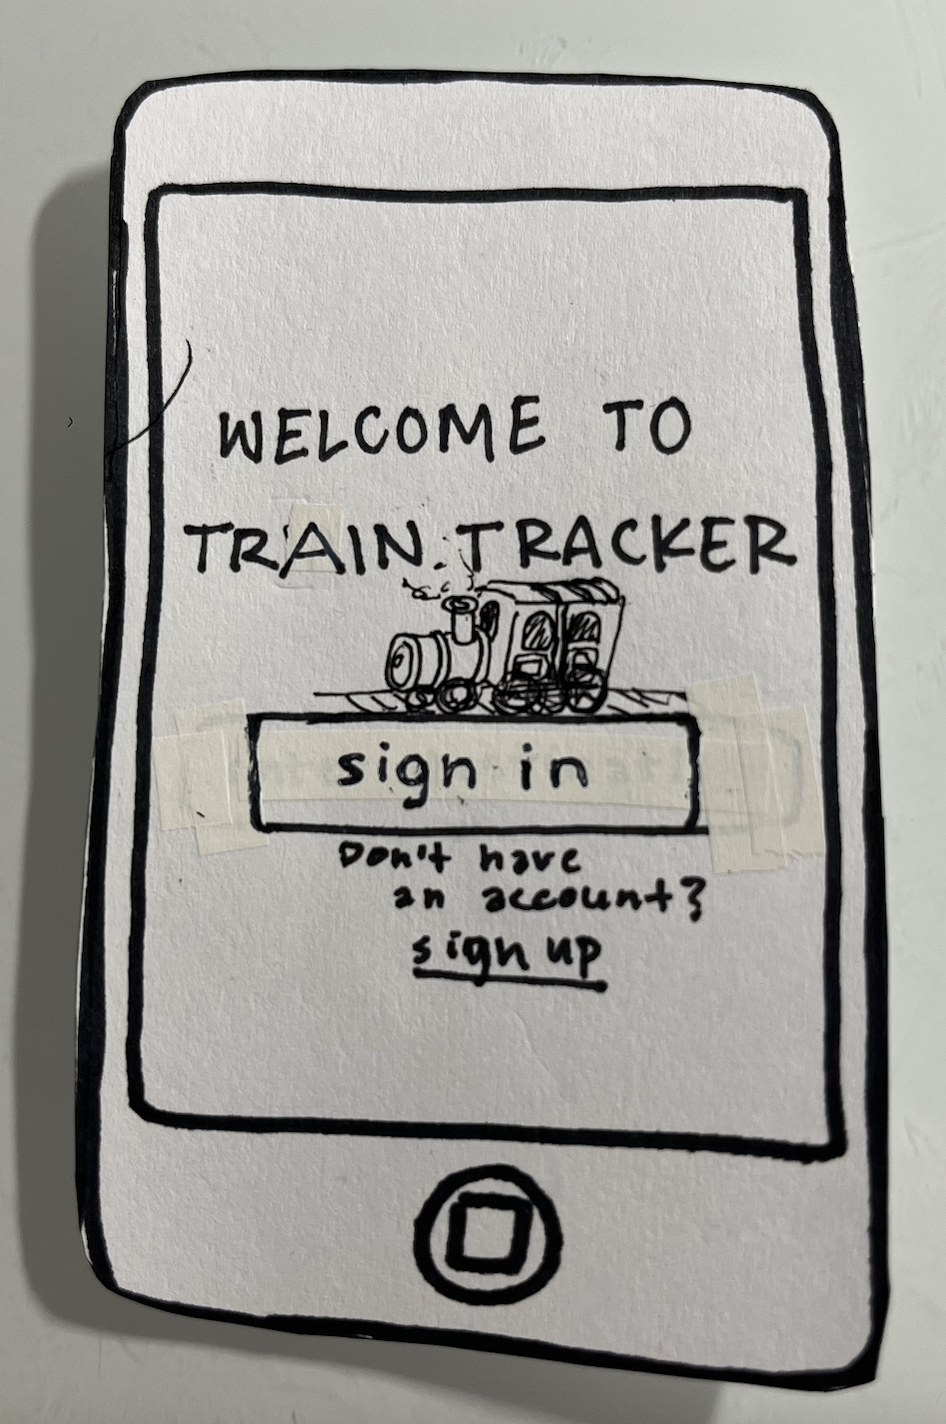 WELCOME TO
TRAIN TRACKER
sign in
Don't have
an account?
sign up